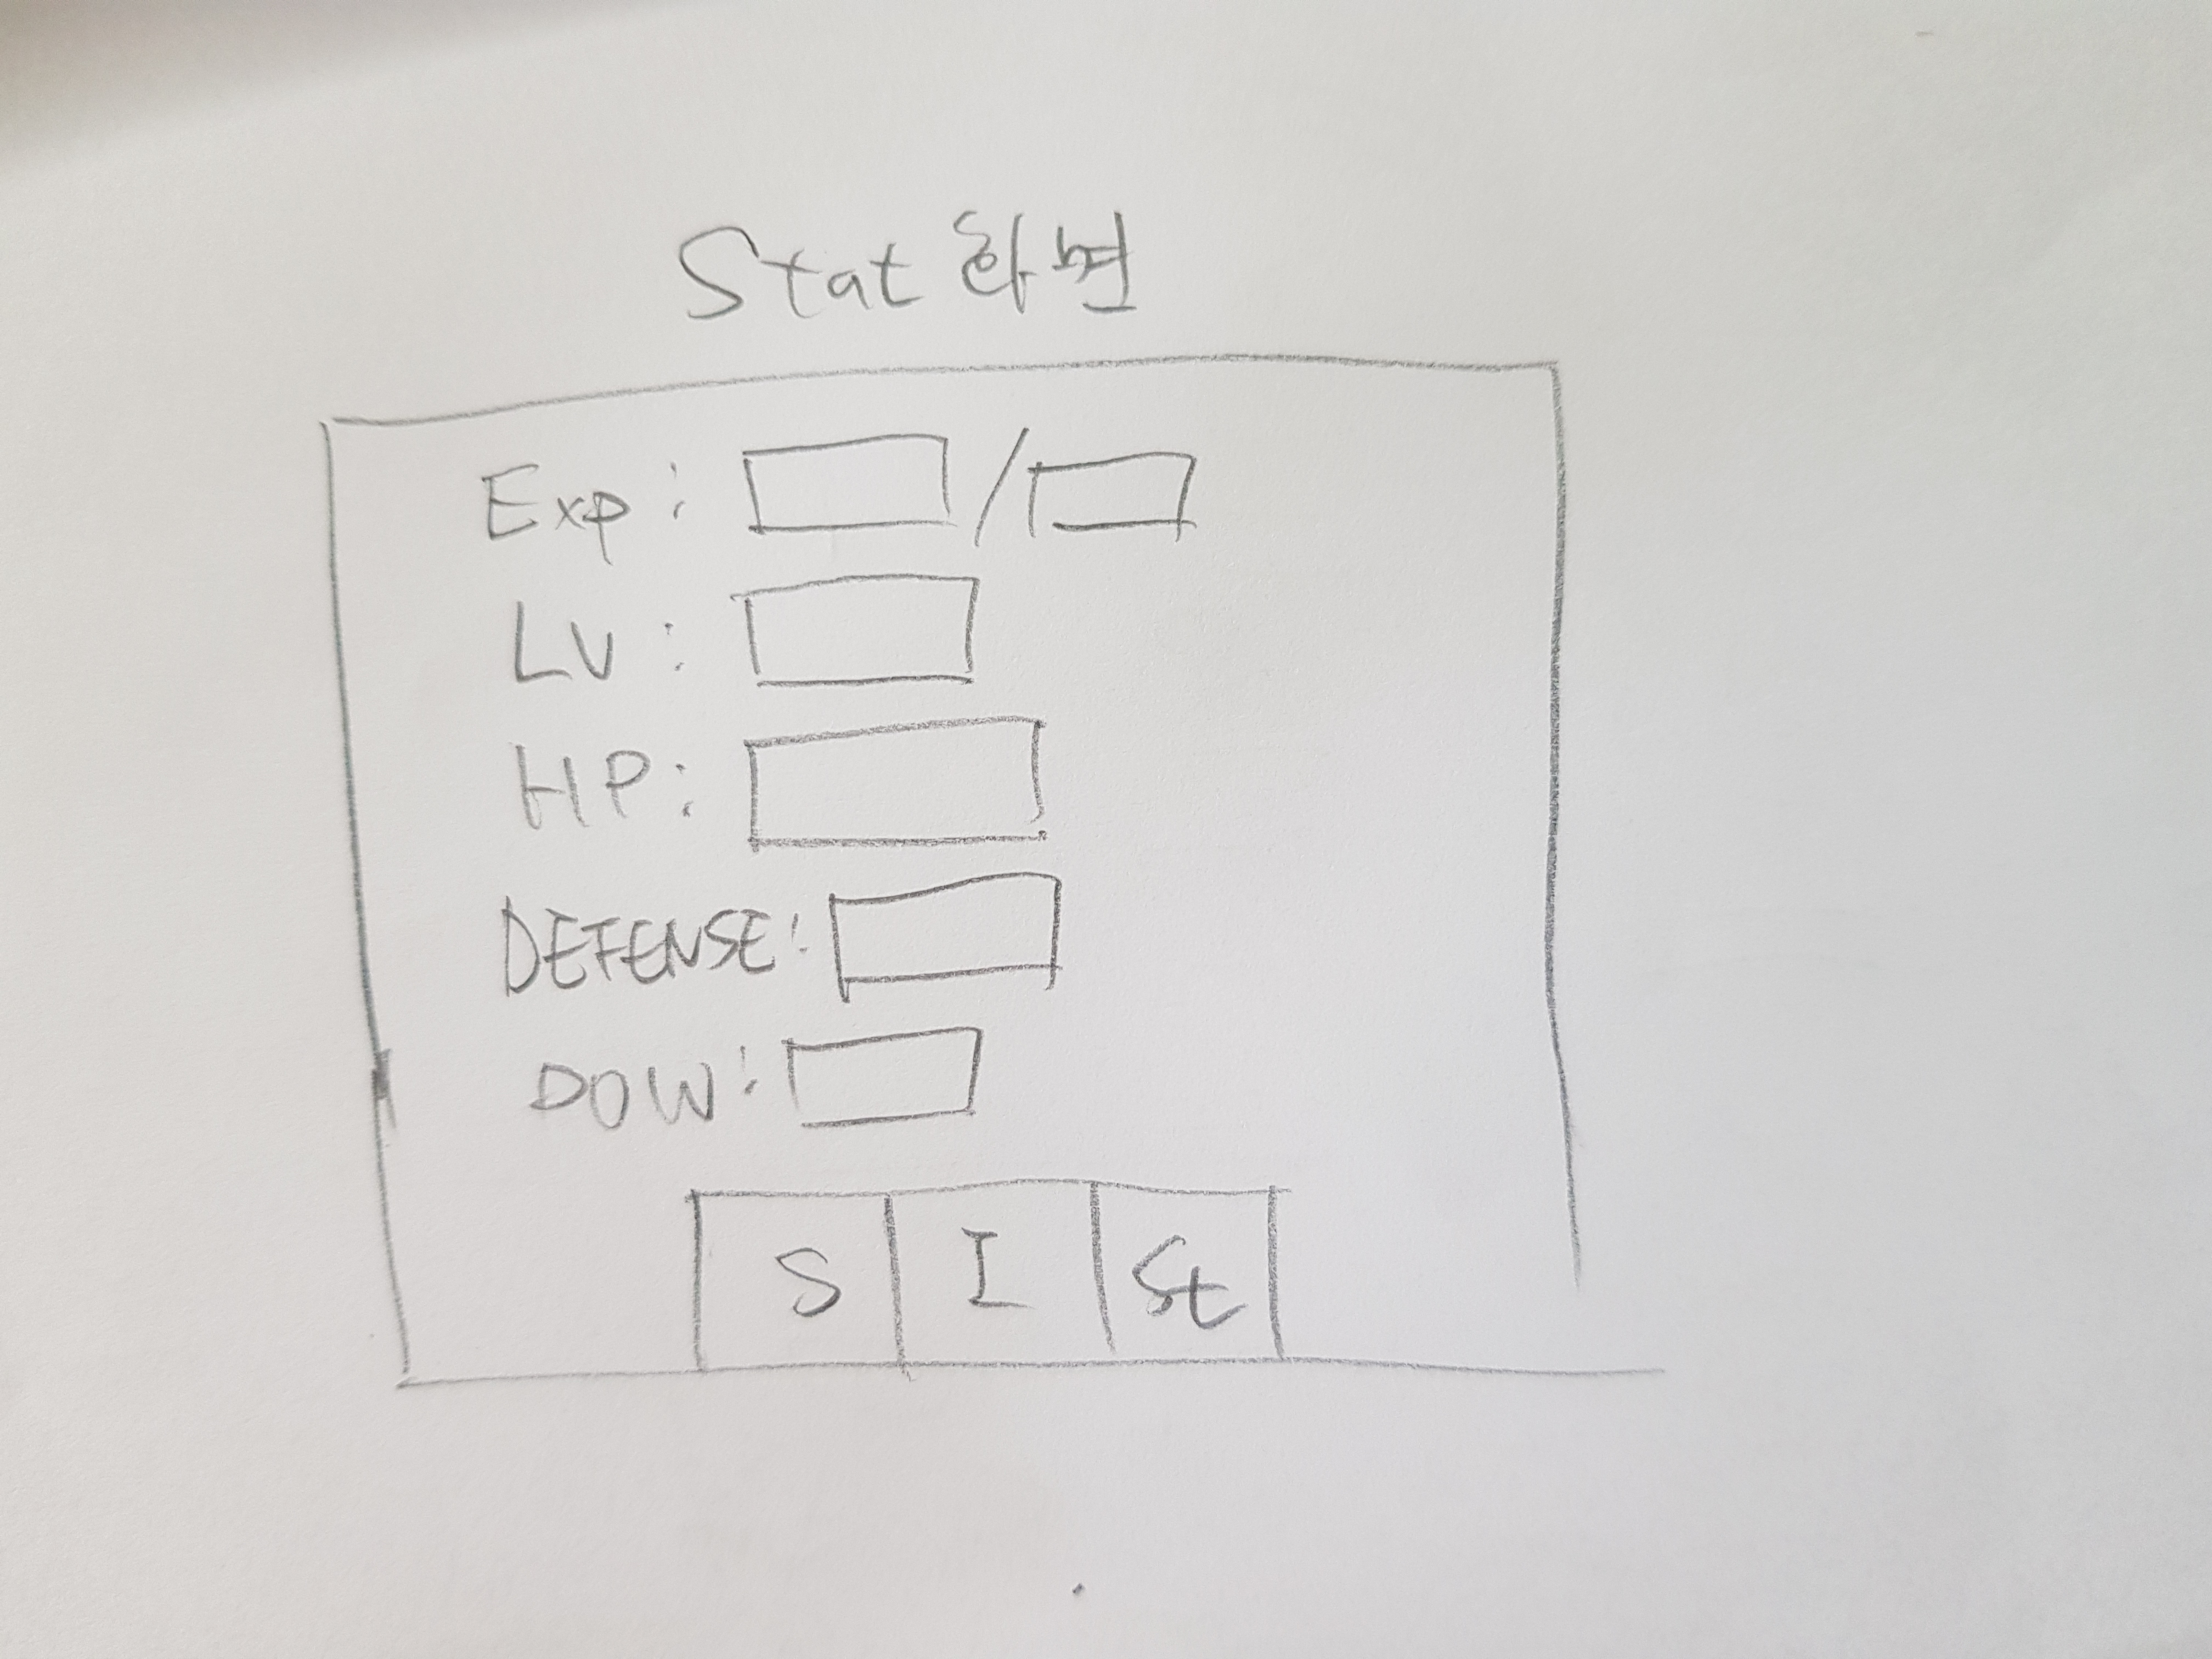 Stat 화면
Exp :
/
LV :
HP :
DEFENSE :
DOW :
S I